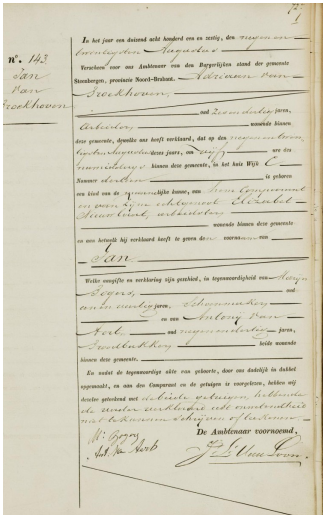 nº. 143
Jan
van
Broekhoven
In het jaar een duizend acht honderd een en zestig, den negen en
twintigsten Augustus
Verscheen voor ons Ambtenaar van den Burgerlijken stand der gemeente
Steenbergen, provincie Noord-Brabant. Adriaan van
Broekhoven,
oud jaren,
Arbeider wonende binnen
deze gemeente, dewelke ons heeft verklaard, dat op den negen en twin-
dezes jaars, om vijf ure des
namiddags binnen deze gemeente, in het huis Wijk C
Nummer is geboren
een kind van de mannelijke kunne, van hem Comparant
en van zijne echtgenoot Elizabet
arbeidster,
wonende binnen deze gemeente
en aan hetwelk hij verklaard heeft te geven den voornaam van
Jan.
Welke aangifte en verklaring zijn geschied, in tegenwoordigheid van
oud
jaren,
en van Antonij van
Aert, oud negen en dertig jaren,
Broodbakker beide wonende
binnen deze gemeente.
En nadat de tegenwoordige akte van geboorte, door ons dadelijk in dubbel
opgemaakt, en aan den Comparant en de getuigen is voorgelezen, hebben wij
dezelve geteekend met de beide getuigen, hebbende
de vader verklaard uit onkundigheid
niet te kunnen schrijven of teekenen
De Ambtenaar voornoemd.
Ant. van Aert
van Loon